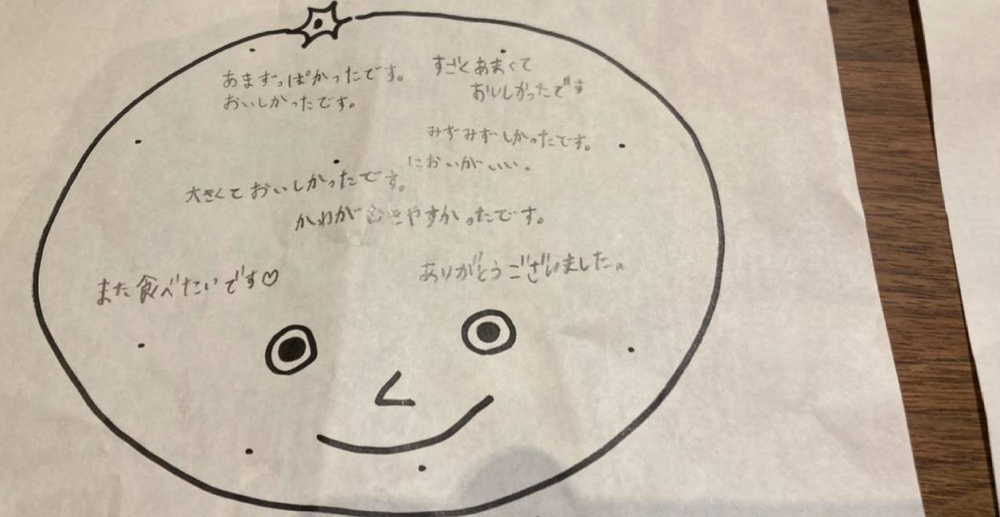 あまずっぱかったです。
おいしかったです。
すごくあまくて
おいしかったです
みずみずしかったです。
においがいい。
大きくておいしかったです。
かわがむきやすかったです。
また食べたいです♡
ありがとうございました。